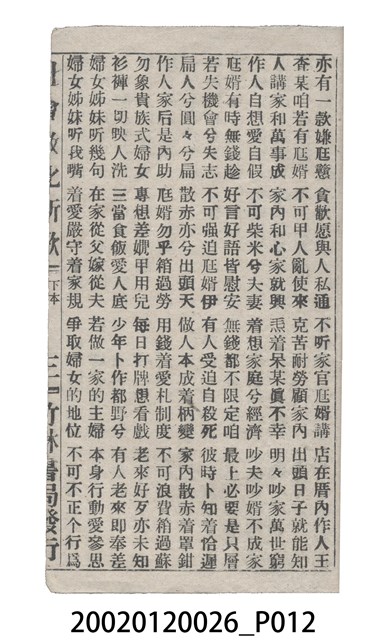 亦有一款嫌尫戇 貪歡愿與人私通 不听家官尫婿講 店在厝內作人王
查某咱若有尫婿 不可甲人亂使來 克苦耐勞顧家內 出頭日子就能知
人講家和萬事成 家內和心家就興 焄着呆某眞不幸 明々吵家萬世窮
作人自想愛自假 不可柴米兮夫妻 着想家庭兮經濟 吵夫吵婿不成家
尫婿有時無錢趁 好言好語皆慰安 無錢都不限定咱 最上必要是只層
若失機會兮失志 不可强迫尫婿伊 有人受迫自殺死 彼時卜知着恰遲
扁人兮圓々兮扁 散赤亦兮出頭天 做人本成着柄變 家內散赤着罩鉗
作人家后是內助 尫婿勿乎稍過勞 用錢着愛札制度 不可浪費稍過蘇
勿象貴族式婦女 專想差嫺甲用兒 每日打牌想看戲 老來好歹亦未知
衫褲一切映人洗 三當食飯愛人底 少年卜作都野兮 有人老來即奉差
婦女姊妹听幾句 在家從父嫁從夫 若做一家的主婦 本身行動愛參思
婦女姊妹听我嘴 着愛嚴守着家規 爭取婦女的地位 不可不正个行爲
會教化新歌 下本 三 竹林書局發行
20020120026_P012